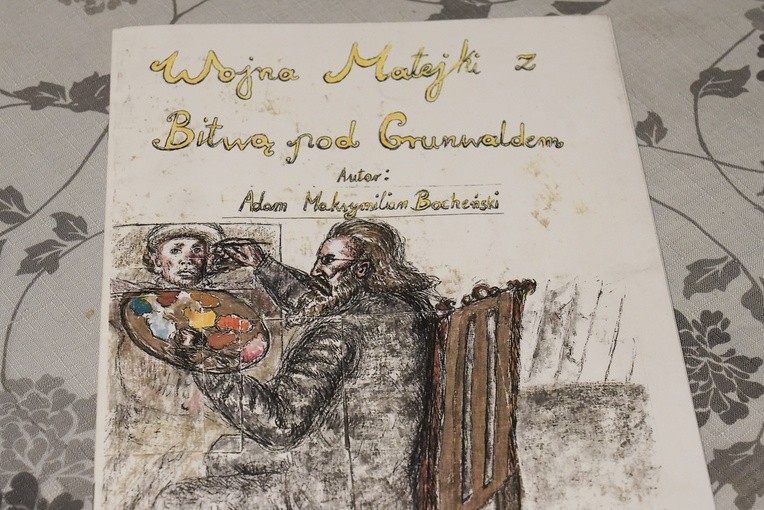 Wojna Matejki z
Bitwą pod Grunwaldem
Autor:
Adam Maksymilian Bocheński